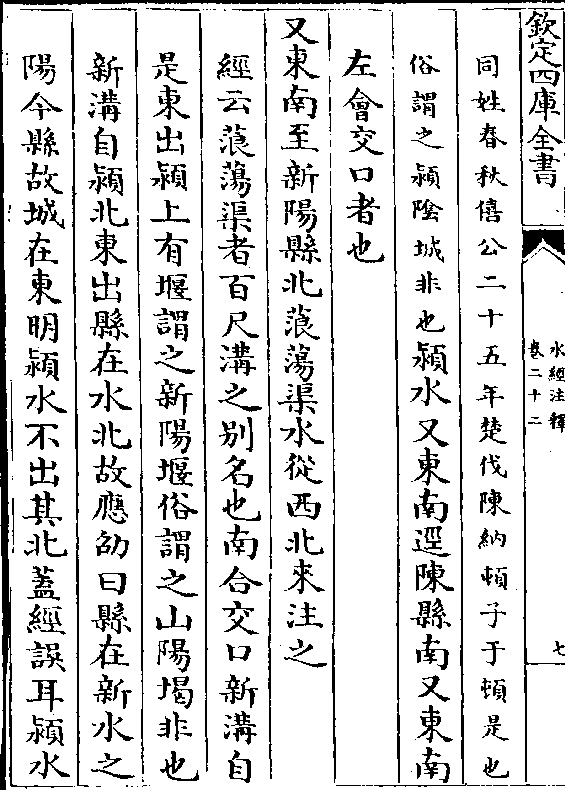 欽定四庫全書
水經注釋
卷二十二
七
同姓春秋僖公二十五年楚伐陳納頓子于頓是也
俗謂之潁陰城非也潁水又東南逕陳縣南又東南
左會交口者也
又東南至新陽縣北蒗蕩渠水從西北來注之
經云蒗蕩渠者百尺溝之别名也南合交口新溝自
是東出潁上有堰謂之新陽堰俗謂之山陽堨非也
新溝自潁北東出縣在水北故應劭曰縣在新水之
陽今縣故城在東明潁水不出其北蓋經誤耳潁水